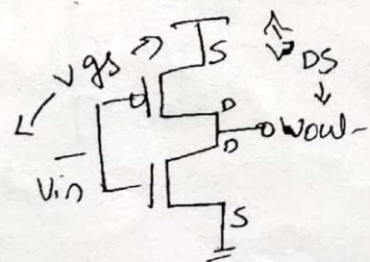 Vgs
S
VDS
D
D
Vout
Vin
S